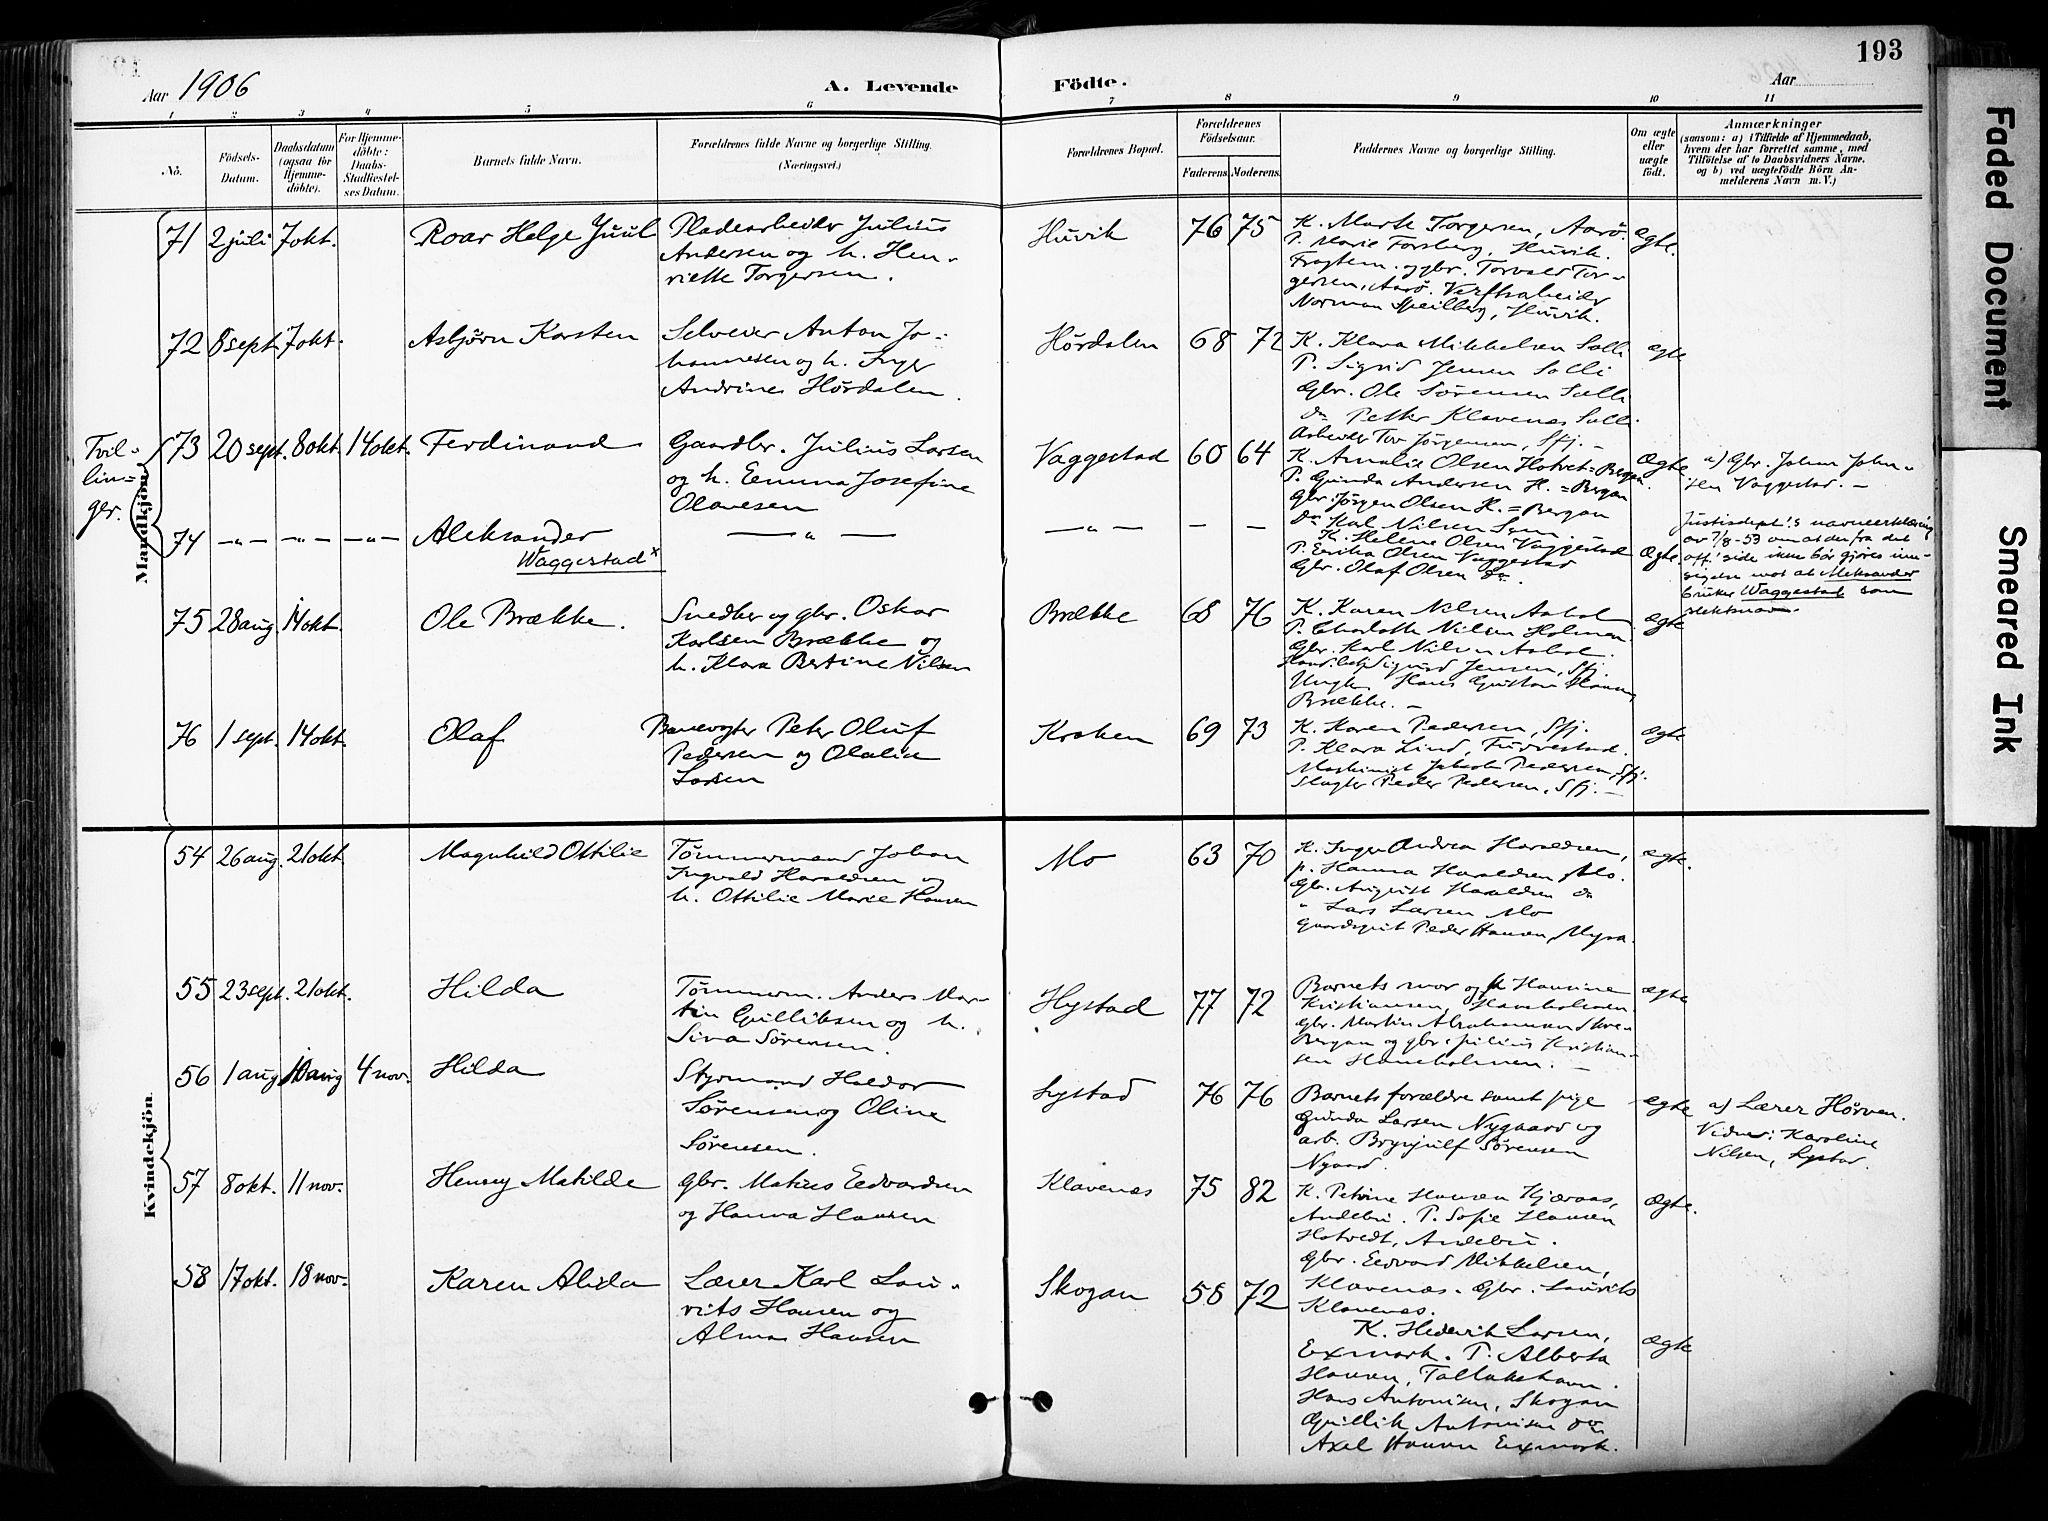 193
Aar 1906
A. Levende
Födte.
Aar
1 2 3 4 5 6 7 8 9 10 11
No.
Födsels-Datum.
Daabsdatum (ogsaa for Hjemme-döbte).
For Hjemme-döbte: Daabs-Stadfæstel-ses Datum.
Barnets fulde Navn.
Forældrenes fulde Navne og borgerlige Stilling.
(Næringsvei.)
Forældrenes Bopæl.
Forældrenes Födselsaar.
Faderens. Moderens.
Faddernes Navne og borgerlige Stilling.
Om ægte eller uægte födt.
Anmærkninger
(saasom: a) i Tilfælde af Hjemmedaab,
hvem der har forrettet samme, med
Tilföielse af to Daabsvidners Navne.
og b) ved uægtefödte Börn An-
melderens Navn m. V.)
Mandkjön.
71 2 juli 7 okt. Roar Helge Juul
Pladearbeider Julius
Andersen og h. Hen-
riette Torgersen.
Huvik 76 75
K. Marte Torgersen, Aarö.
P. Marie Forsberg, Huvik.
Fragtem. og gbr. Torvald Tor-
gersen, Aarö. Verftsarbeider
Norman Speilberg, Huvik.
ægte.
72 8 sept. 7 okt. Asbjørn Karsten
Selveier Anton Jo-
hannesen og h. Inger
Andrine Hørdalen.
Hørdalen 68 72
K. Klara Mikkelsen Solli
P. Sigrid Jensen Solli
Gbr. Ole Sørensen Solli
do Petter Klavenæs Solli
Arbeider Tor Jörgensen, Sfj. —
ægte
Tvil-
lin-
ger.
73 20 sept. 8 okt. 14 okt. Ferdinand
Gaardbr. Julius Larsen
og h. Emma Josefine
Olavesen
Vaggestad 60 64
K. Amalie Olsen Hotvet=Bergan
P. Gunda Andersen H.=Bergan
Gbr. Jørgen Olsen H.=Bergan
do Karl Nilsen Sem.
Ægte
a) Gbr. Johan John-
sen Vaggestad. —
74 —"— —"— —"— Aleksander
Waggestad x
— " —
— " — — —
K. Helene Olsen Vaggestad
P. Erika Olsen Vaggestad
Gbr. Olaf Olsen do.
Ægte
Justisdept's navneerklæring
av 7/8-53 om at der fra det
off. side ikke bør gjøres inn-
sigelse mot at Aleksander
bruker Waggestad som
slektsnavn.
75 28 aug. 14 okt. Ole Brække.
Snedker og gbr. Oskar
Karlsen Brække og
h. Klara Bertine Nilsen
Brække 68 76
K. Karen Nilsen Aabol
P. Charlotte Nilsen Holmen
Gbr. Karl Nilsen Aabol.
Handl.betj. Sigurd Jensen, Sfj.
Ungk. Hans Gustav
Brække. —
ægte
76 1 sept. 14 okt. Olaf
Banevogter Peter Oluf
Pedersen og Olalia
Larsen
Kraken 69 73
K. Karen Pedersen, Sfj.
P. Klara Lind, Furrestad.
Maskinist Jakob Pedersen, Sfj.
Slagter Peder Pedersen, Sfj. —
ægte
Kvindekjön.
54 26 aug. 21 okt. Magnhild Ottilie
Tømmermand Johan
Ingvald Haraldsen og
h. Ottilie Marie Hansen
Mo 63 70
K. Inger Andrea Haraldsen,
p. Hanna Haraldsen, Mo.
Gbr. August Haraldsen do
" Lars Larsen Mo
Gaardsgut Peder Hansen, Myra.
ægte.
55 23 sept. 21 okt. Hilda
Tømmerm. Anders Mar-
tin Gulliksen og h.
Sina Sørensen.
Hystad 77 72
Barnets mor og k Hansine
Kristiansen, Haneholmen
Gbr. Martin Abrahamsen Skre-
Bergan og gbr. Julius Kristian-
sen Haneholmen. —
ægte
56 1 aug 10 aug 4 nov. Hilda
Styrmand Haldor
Sørensen og Oline
Sørensen.
Lystad 76 76
Barnets forældre samt pige
Gunda Larsen Nygaard og
arb. Brynjulf Sørensen
Nyaard.
ægte
a) Lærer Hørven.
Vidner: Karoline
Nilsen, Lystad.
57 8 okt. 11 nov. Henny Matilde
Gbr. Matias Edvardsen
og Hanna Hansen
Klavenæs 75 82
K. Petrine Hansen Kjæraas,
Andebu. P. Sofie Hansen
Hotvedt, Andebu.
Gbr. Edvard Mikkelsen,
Klavenæs. Gbr. Laurits
Klavenæs.
Ægte.
58 17 okt. 18 nov. Karen Alida
Lærer Karl Lau-
rits Hansen og
Alma Hansen
Skogan 58 72
K. Hedevik Larsen,
Exmark. P. Alberta
Hansen, Tallakshavn.
Hans Antonisen, Skogan
Gullik Antonisen do
Axel Hansen Exmark.
ægte
Faded Document
Smeared Ink